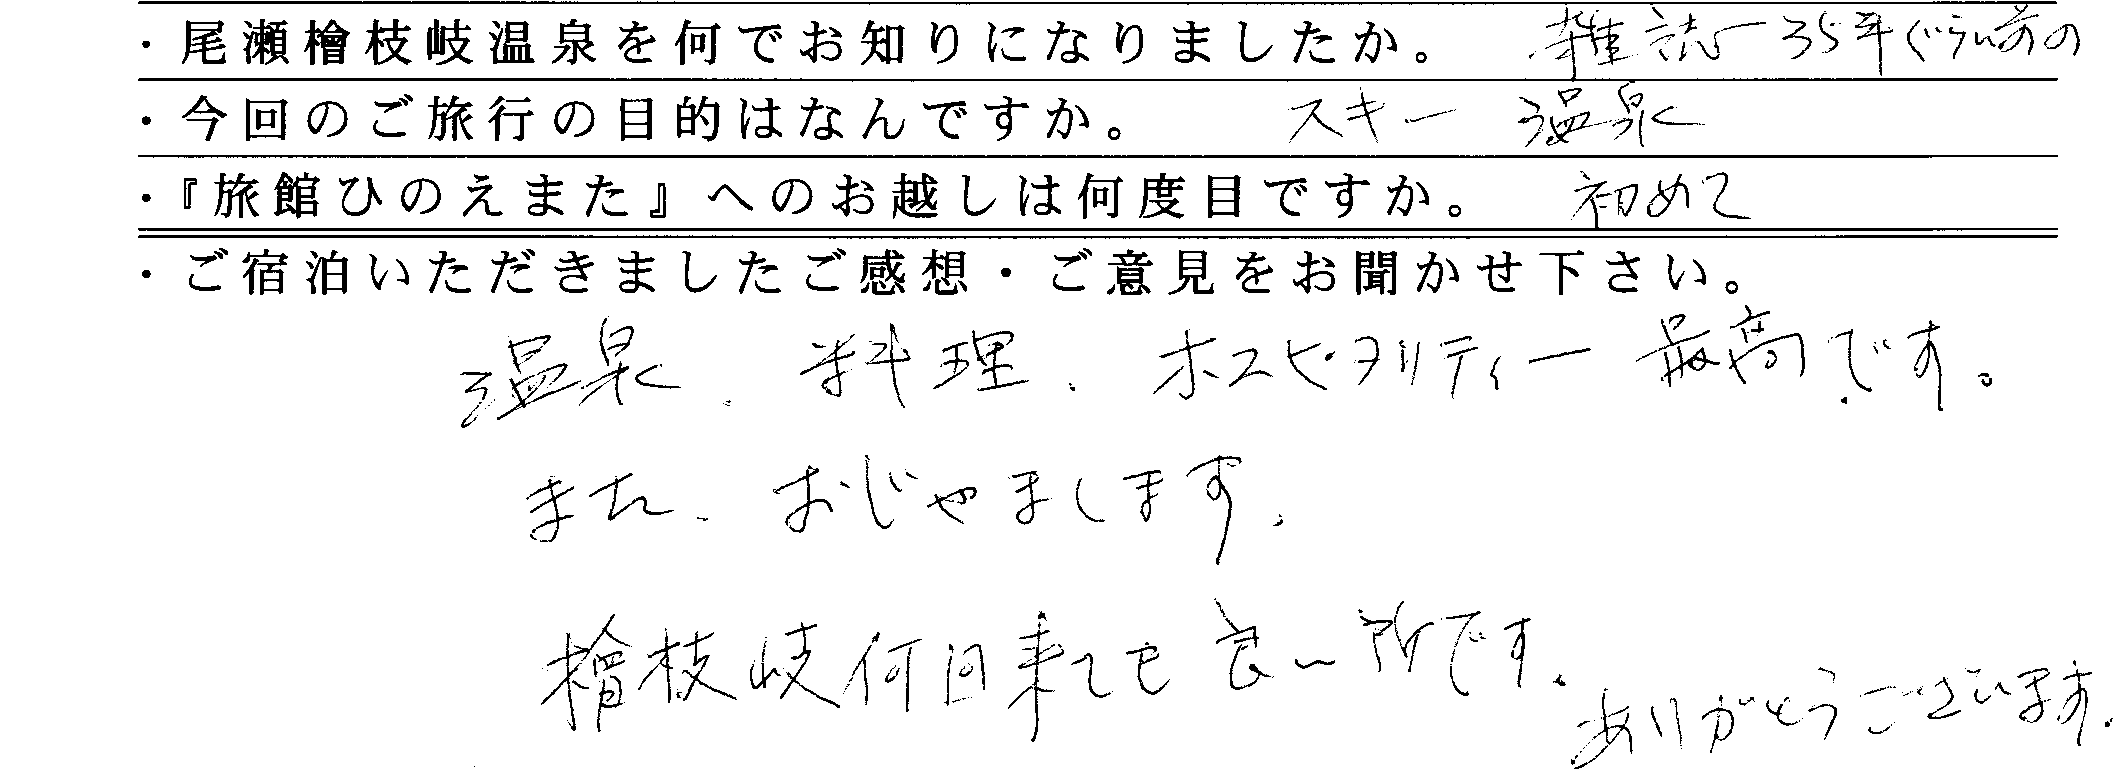 ・尾瀬檜枝岐温泉を何でお知りになりましたか。 雑誌ー35年ぐらい前の
・今回のご旅行の目的はなんですか。 スキー 温泉
・『旅館ひのえまた』へのお越しは何度目ですか。 初めて
・ご宿泊いただきましたご感想・ご意見をお聞かせ下さい。
温泉、料理、ホスピタリティー最高です。
また、おじゃまします。
檜枝岐何回来ても良い所です。
ありがとうございます。